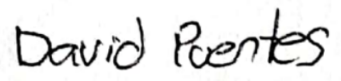 David Puentes